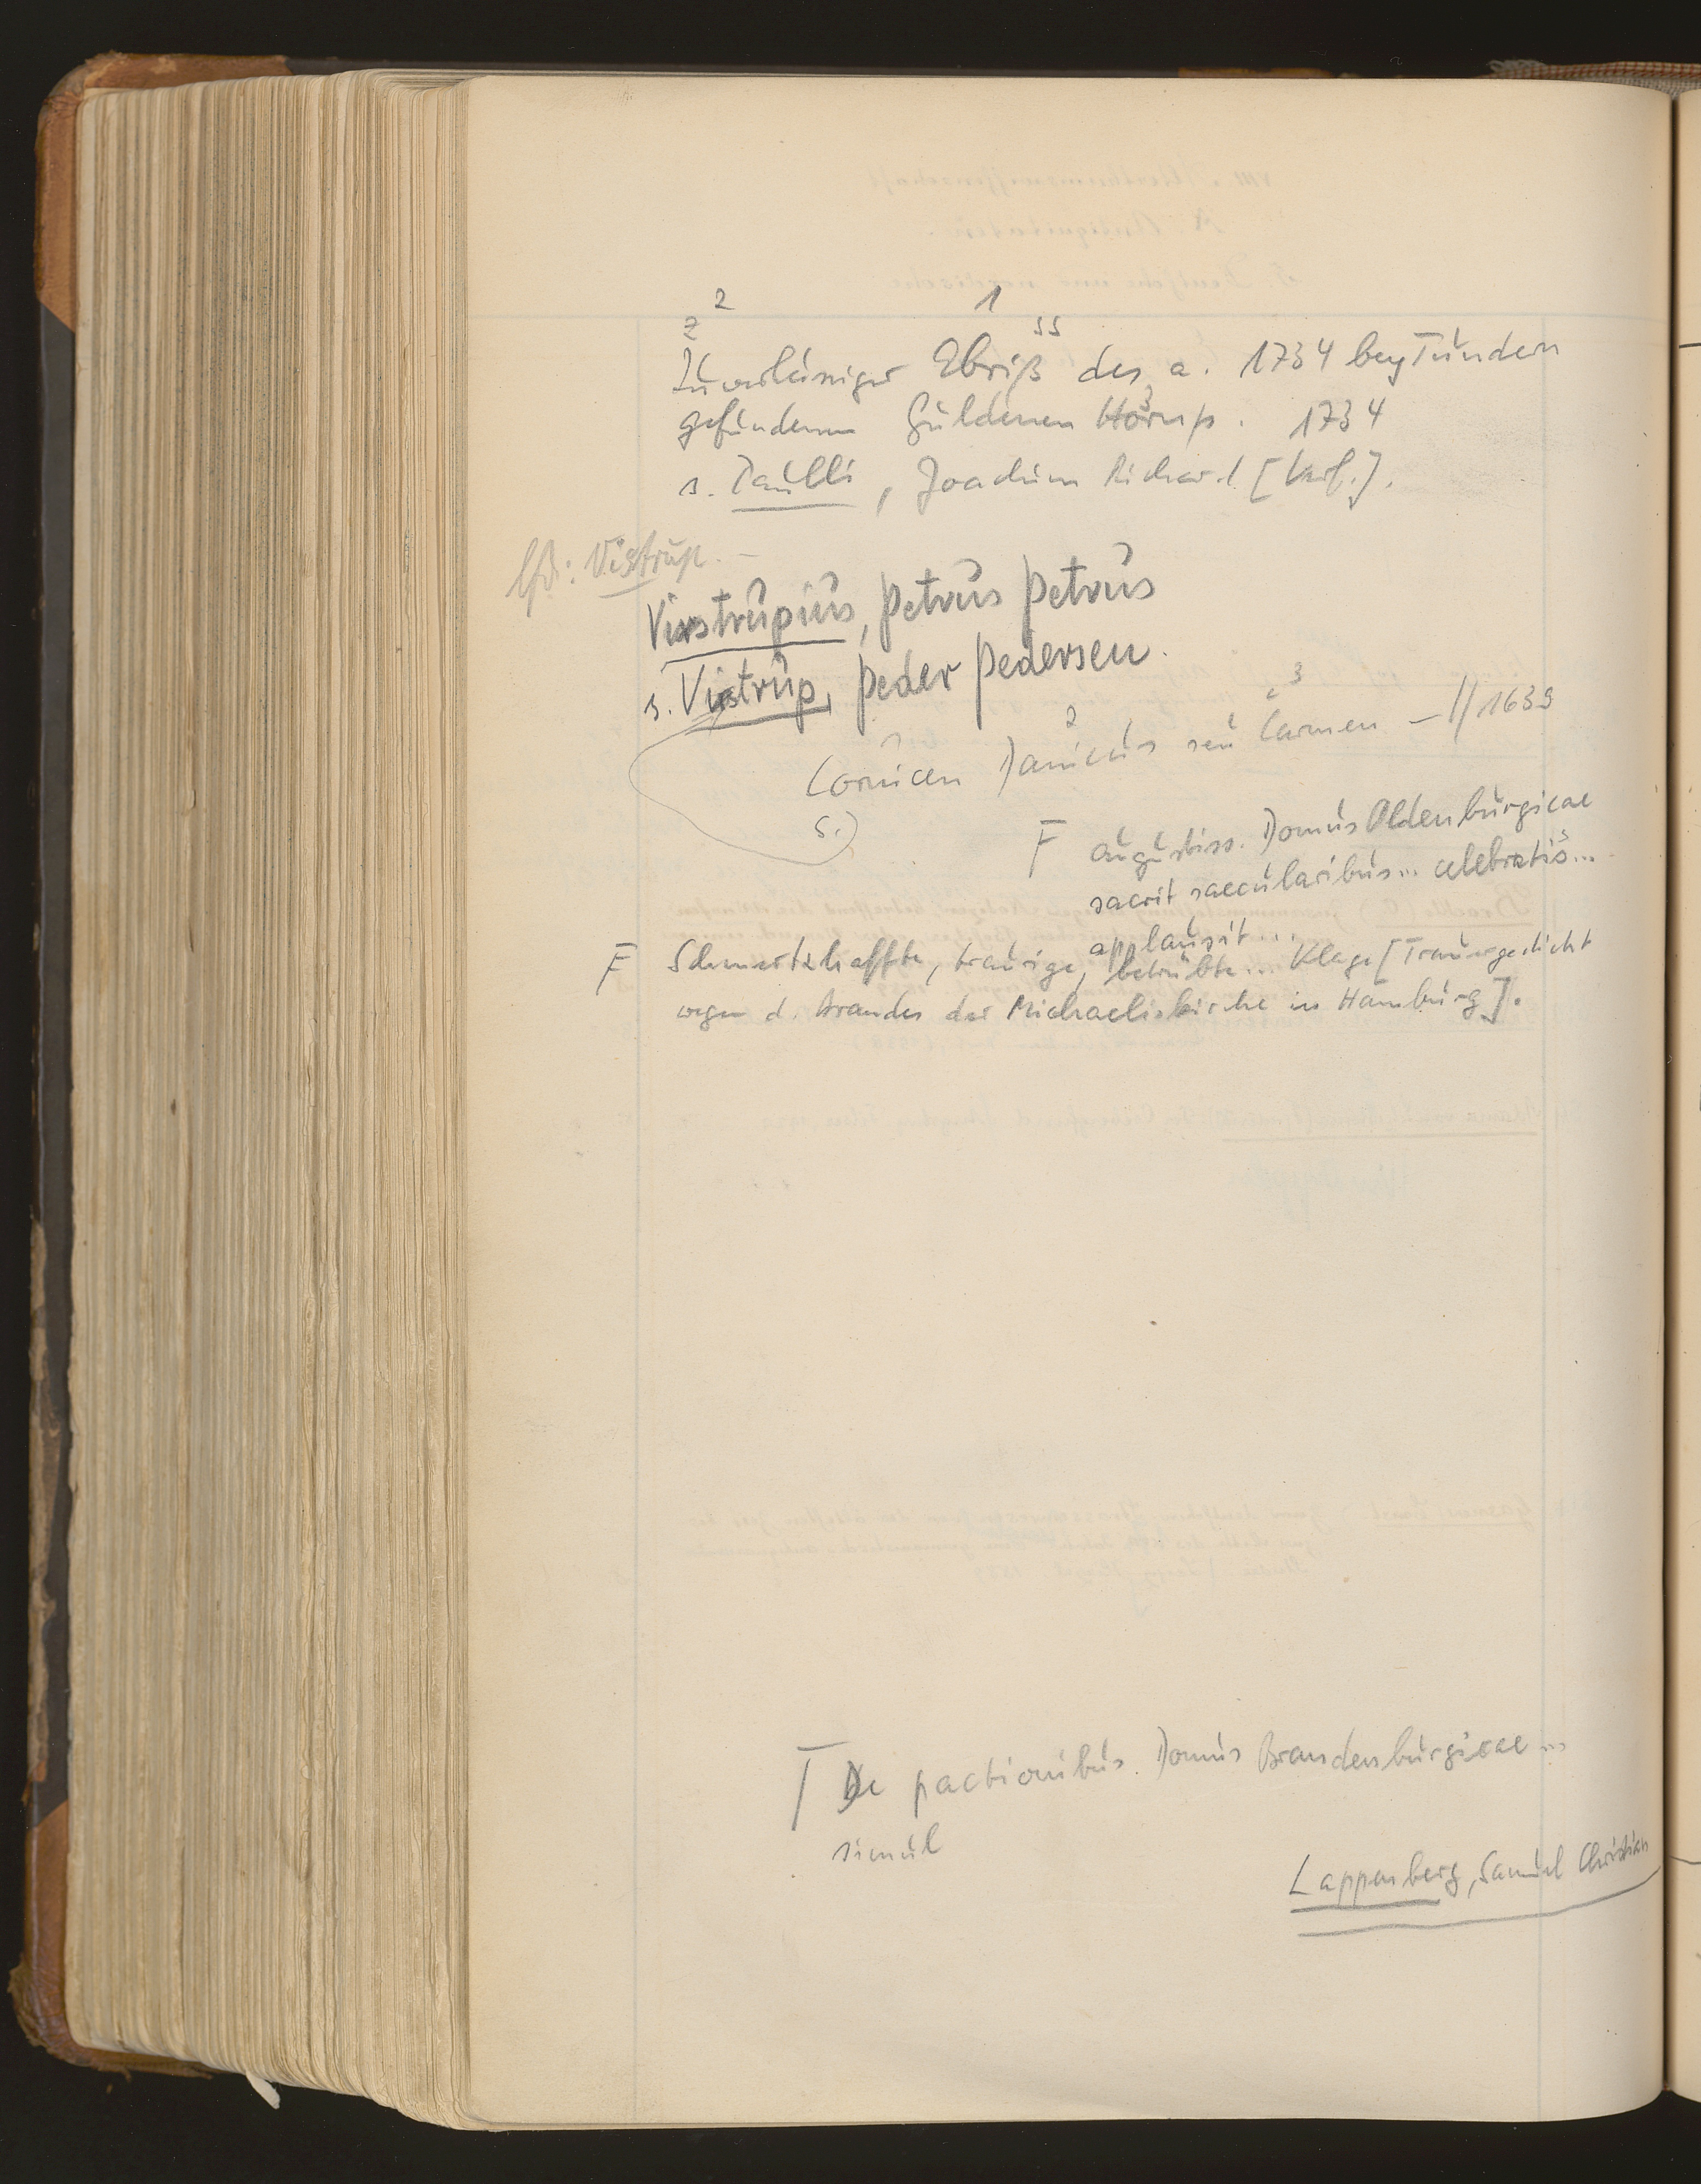 2 1
z ss
Zuverlässiger Ebriß des a. 1734 bey Tundern
gefundenen Güldenen Horns. 1734
3
s. Paulli, Joachim Richard [Verf.].
Vistrup.
Vistrupius, Petrus Petrus
s. Vistrup, Peder Pedersen.
2 c 3
Cornicen Danicus seu Carmen — // 1639
S.)
F augustiss. Domus Oldenburgicae
sacrit saecularibus... celebratis...
applausit...
F Schmertzhaffte, traurige, betrübte... Klage [Trauergedicht
wegen d. Brandes der Michaeliskirche in Hamburg].
De pactionibus Domus Brandenburgicae...
simul
Lappenberg, Samuel Christian